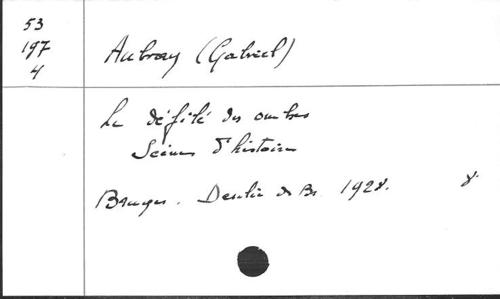 53
197
4
Aubray (Gabriel)
Le défilé des ombres
Scènes d'histoires
Bruges. Desclée de Br. 1928. 8°